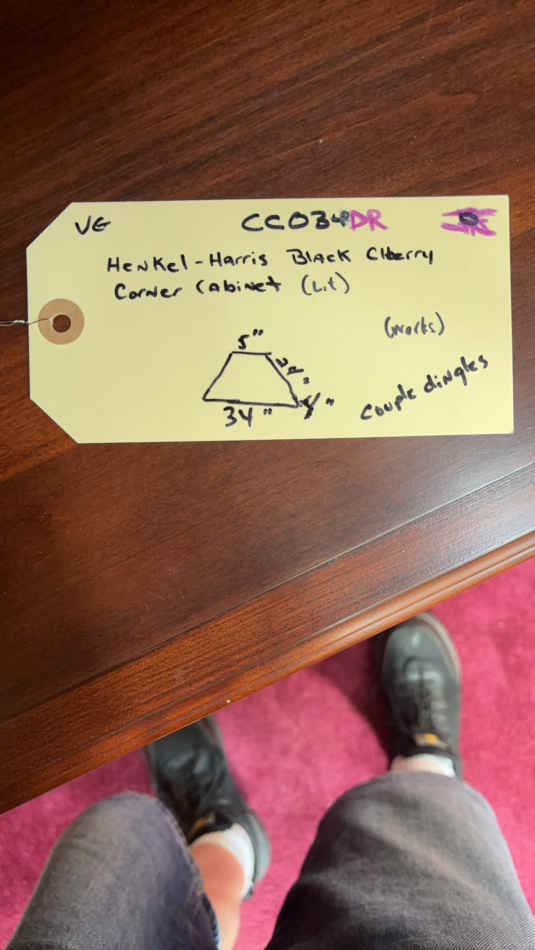 VG
CC034DR
Henkel-Harris Black Cherry
Corner Cabinet (Lit)
(works)
5"
34"
couple dingles